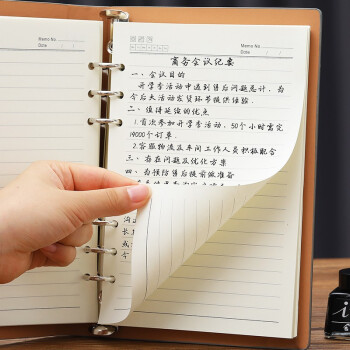 Memo No
Date / /
Memo No
Date / /
商务会议纪要
一、会议目的
开学季活动中遇到售后问题总计，为
今后大活动发货环节提供经验.
二、值得延续的优点
1.首次参加开学季活动，50个小时售完
19000个订单.
2.客服物流及车间工作人员积极配合
三、存在问题及优化方案
四、为预防售后提前做准备
沟
长
或
i